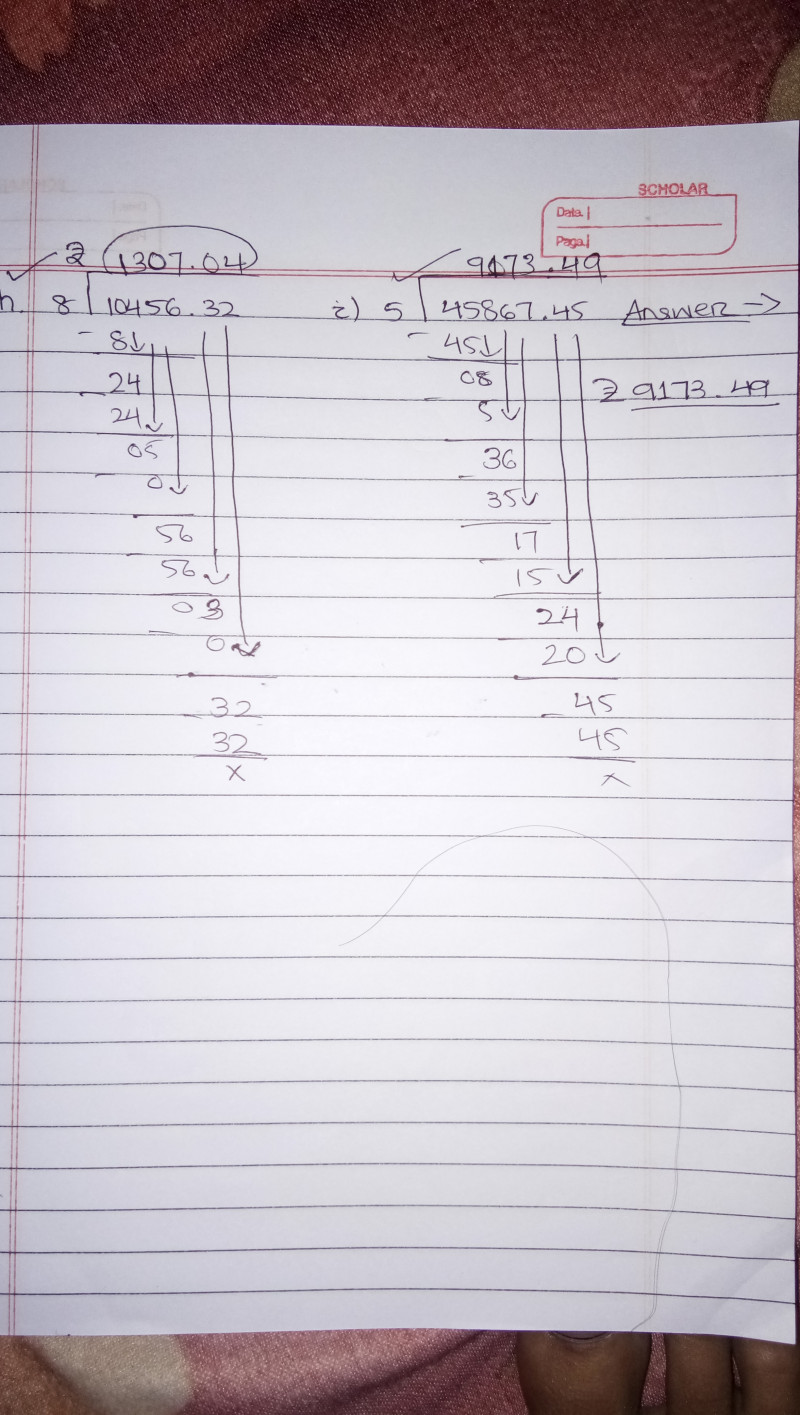 SCHOLAR
Date
Page
✓ ₹ 1307.04
h. 8 10456.32
- 8↓
24
- 24
05
- 0
56
- 56
03
- 0
32
- 32
x
✓ 9173.49
i) 5 45867.45 Answer →
- 45↓
08
₹ 9173.49
- 5
36
- 35
17
- 15
24
- 20
45
- 45
x